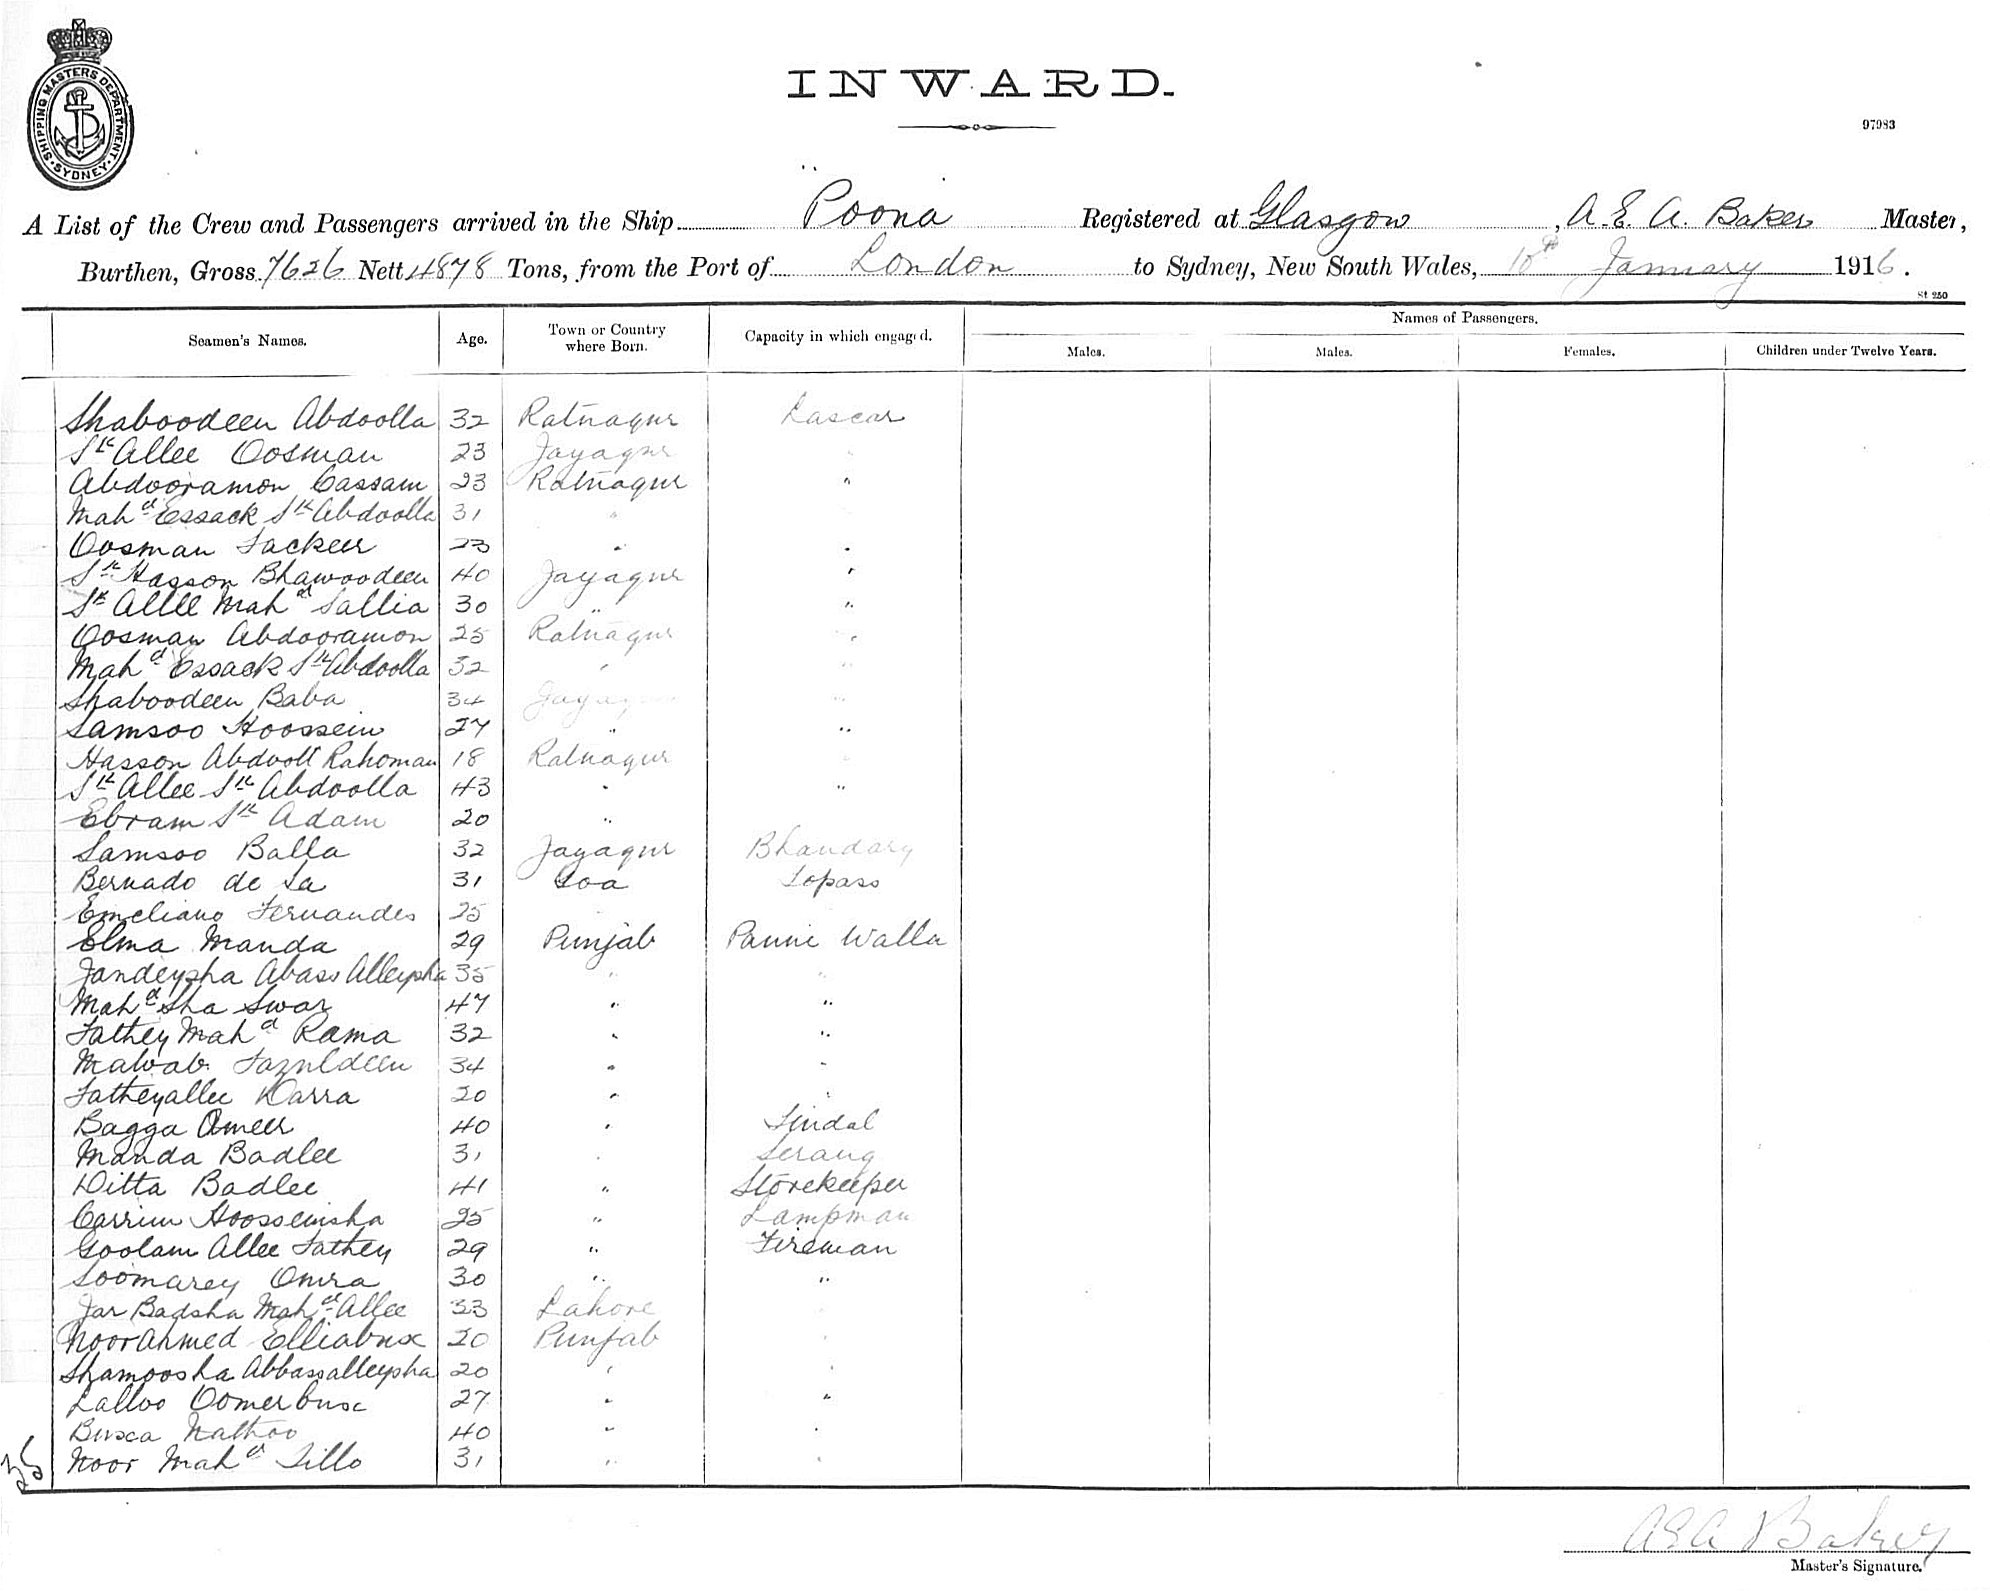 INWARD.
SHIPPING MASTERS DEPARTMENT. SYDNEY.
97983
A List of the Crew and Passengers arrived in the Ship Poona Registered at Glasgow, A. E. A. Baker Master,
Burthen, Gross 7626 Nett 4878 Tons, from the Port of London to Sydney, New South Wales, 10th January 1916.
St 250
Seamen's Names. Age. Town or Country where Born. Capacity in which engaged. Names of Passengers.
Males. Males. Females. Children under Twelve Years.
Shaboodeen Abdoolla 32 Ratnagur Lascar
Sk Allee Oosman 23 Jayagur "
Abdooramon Cassam 23 Ratnagur "
Mahd Essack Sk Abdoolla 31 " "
Oosman Fackeer 23 " "
Sk Hasson Bhawoodeen 40 Jayagur "
Sk Allee Mahd Sallia 30 " "
Oosman Abdooramon 25 Ratnagur "
Mahd Essack Sk Abdoolla 32 " "
Shaboodeen Baba 34 Jayagur "
Samsoo Hoossein 27 " "
Hasson Abdool Rahoman 18 Ratnagur "
Sk Allee Sk Abdoolla 43 " "
Ebram Sk Adam 20 "
Samsoo Balla 32 Jayagur Bhandary
Bernado de Sa 31 Goa Topass
Emeliano Fernandes 25
Elma Manda 29 Punjab Pannie Walla
Jandeysha Abass Alleysha 35 " "
Mahd Sha Swar 47 " "
Fathey Mahd Rama 32 " "
Fazuldeen 34 " "
Fatheyallee Darra 20 " "
Bagga Ameer 40 " Tindal
Manda Badlee 31 " Serang
Ditta Badlee 41 " Storekeeper
Carrim Hoosseinsha 25 " Lampman
Goolam Allee Fathey 29 " Fireman
Soomarey Omra 30 " "
Jar Badsha Mahd Allee 33 Lahore "
Noor Ahmed Elliabux 20 Punjab "
Shamoosha Abbassalleysha 20 " "
Lalloo Oomerbux 27 " "
Buxa Nathoo 40 " "
Noor Mahd Tillo 31 " "
35
A E A Baker
Master's Signature.